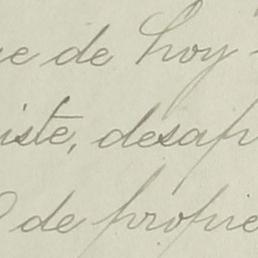 de hoy
iste, desap
de propie